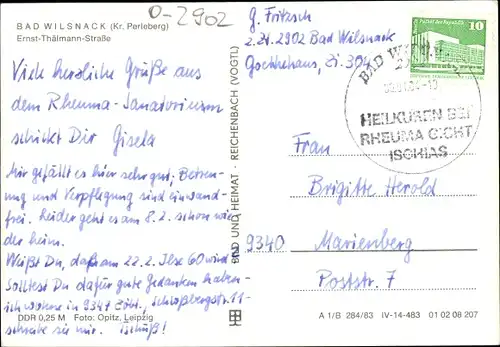 O-2902
BAD WILSNACK (Kr. Perleberg)
Ernst-Thälmann-Straße
G. Fritzsch
z. Zt. 2902 Bad Wilsnack
Goethehaus, Zi. 304
10
BAD WILSNACK
HEILKUREN BEI
RHEUMA GICHT
ISCHIAS
Viele herzliche Grüße aus
dem Rheuma-Sanatorium
schickt Dir Gisela
Mir gefällt es hier sehr gut, Betreu-
ung und Verpflegung sind einwand-
frei. Leider geht es am 8.2. schon wie-
der heim.
Weißt Du, daß am 22.2. Ilse 60 wird?
Solltest Du dafür gute Gedanken haben
ich wohne in 9341 Zöbl., Schloßbergstr. 11
schreibe sie mir. Tschüß!
BILD UND HEIMAT · REICHENBACH (VOGTL)
Frau
Brigitte Herold
9340
Marienberg
Poststr. 7
DDR 0,25 M Foto: Opitz, Leipzig
A 1/B 284/83 IV-14-483 01 02 08 207